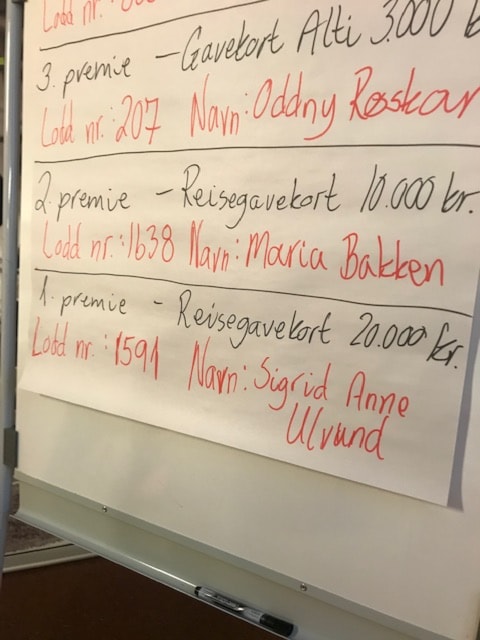 Lodd nr.
3. premie - Gavekort Alti 3.000
Lodd nr.: 207 Navn: Oddny Røskar
2. premie - Reisegavekort 10.000 kr.
Lodd nr.: 1638 Navn: Maria Bakken
1. premie - Reisegavekort 20.000 kr.
Lodd nr.: 1591 Navn: Sigrid Anne
Ulvund